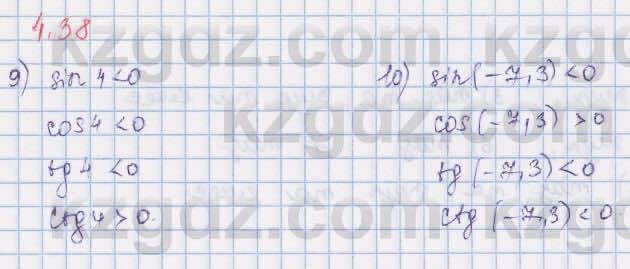 4.38
9) sin 4 < 0
cos 4 < 0
tg 4 < 0
ctg 4 > 0.
10) sin(-7,3) < 0
cos(-7,3) > 0
tg(-7,3) < 0
ctg(-7,3) < 0.
kzgdz.com
kzgdz.com
kzgdz.com
kzgdz.com